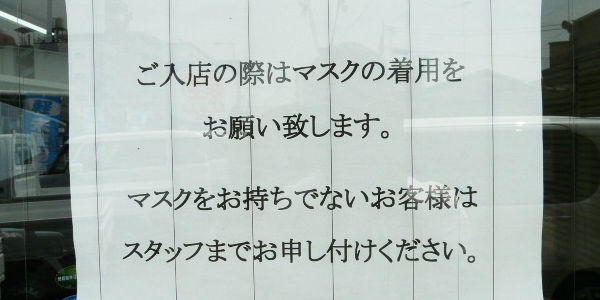 ご入店の際はマスクの着用を
お願い致します。
マスクをお持ちでないお客様は
スタッフまでお申し付けください。